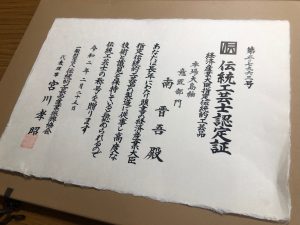 伝統工芸士認定証
経済産業大臣指定伝統的工芸品
本場大島紬
部門
南 晋吾 殿
あなたは長年にわたり頭書の経済産業大臣
指定伝統的工芸品の製造に従事し高度な
技術と技法を保持していると認められるので
伝統工芸士の称号を贈ります
令和二年二月二十五日
一般財団法人 伝統的工芸品産業振興協会
代表理事 宮川孝昭